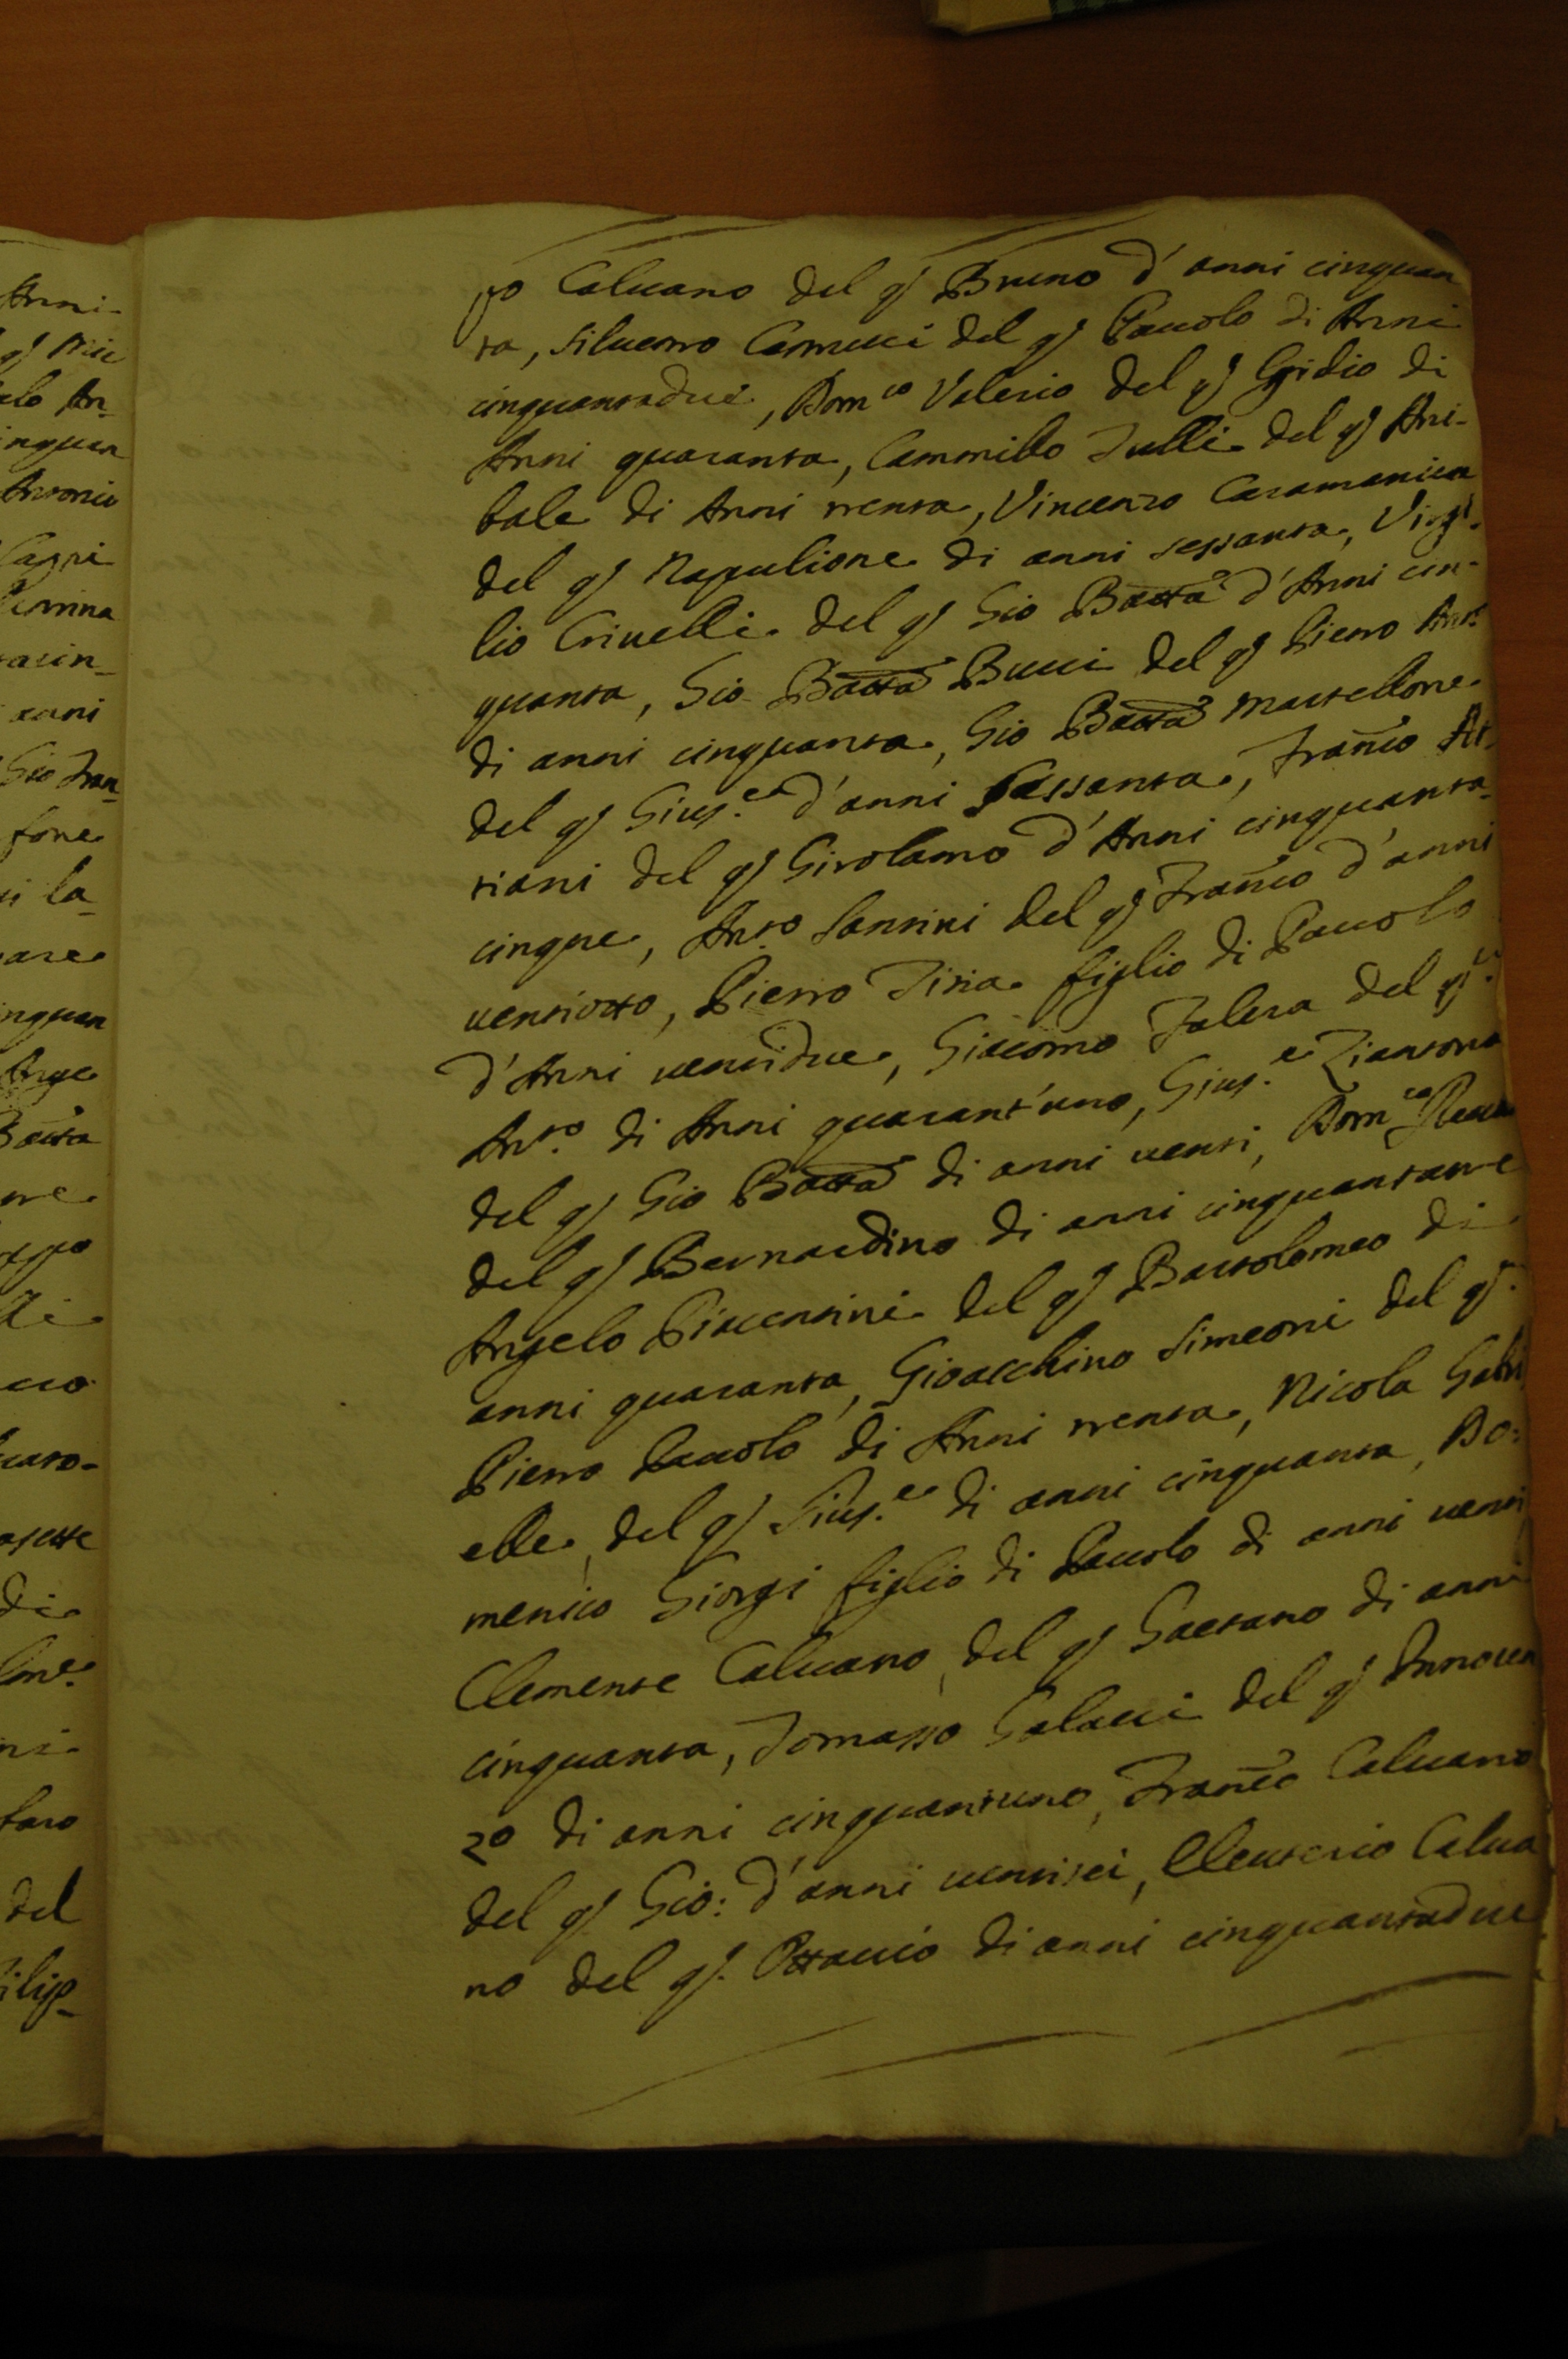 po Caluano del q. Bruno d'anni cinquan
ta, Siluerro Camucci del q. Pauolo di Anni
cinquantadue, Dom.co Valerio del q. Egidio di
Anni quaranta, Cammillo Tulli del q. Ani-
bale di Anni trenta, Vincenzo Caramanica
del q. Napulione di anni sessanta, Virgi-
lio Criuelli del q. Gio Batta d'Anni cin-
quanta, Gio Batta Bucci del q. Pietro Ant.o
di anni cinquanta, Gio Batta Martellone
del q. Gius.e d'anni sessanta, Franco At-
tiani del q. Girolamo d'Anni cinquanta-
cinque, Ant.o Santini del q. Franco d'anni
uentiotto, Pietro Tiria figlio di Pauolo
d'Anni uentidue, Giacomo Talera del q.
Ant.o di Anni quarant'uno, Gius.e Ziantona
del q. Gio Batta di anni uenti, Dom.co
del q. Bernardino di anni cinquantatre
Angelo Piacentini del q. Bartolomeo di
anni quaranta, Gioacchino Simeoni del q.
Pietro Pauolo di Anni trenta, Nicola Gabri
elle, del q. Gius.e di anni cinquanta, Do:
menico Giorgi figlio di Pauolo di anni uenti
Clemente Caluano, del q. Gaetano di anni
cinquanta, Tomasso Galacci del q. Innocen
zo di anni cinquantuno, Franco Caluano
del q. Gio: d'anni uentisei, Eleuterio Calua
no del q. Ottauio di anni cinquantadue
Anni
q. Nic
Antonio
anni
Gio Fran
fone
la-
Batta
di
del
Filip-